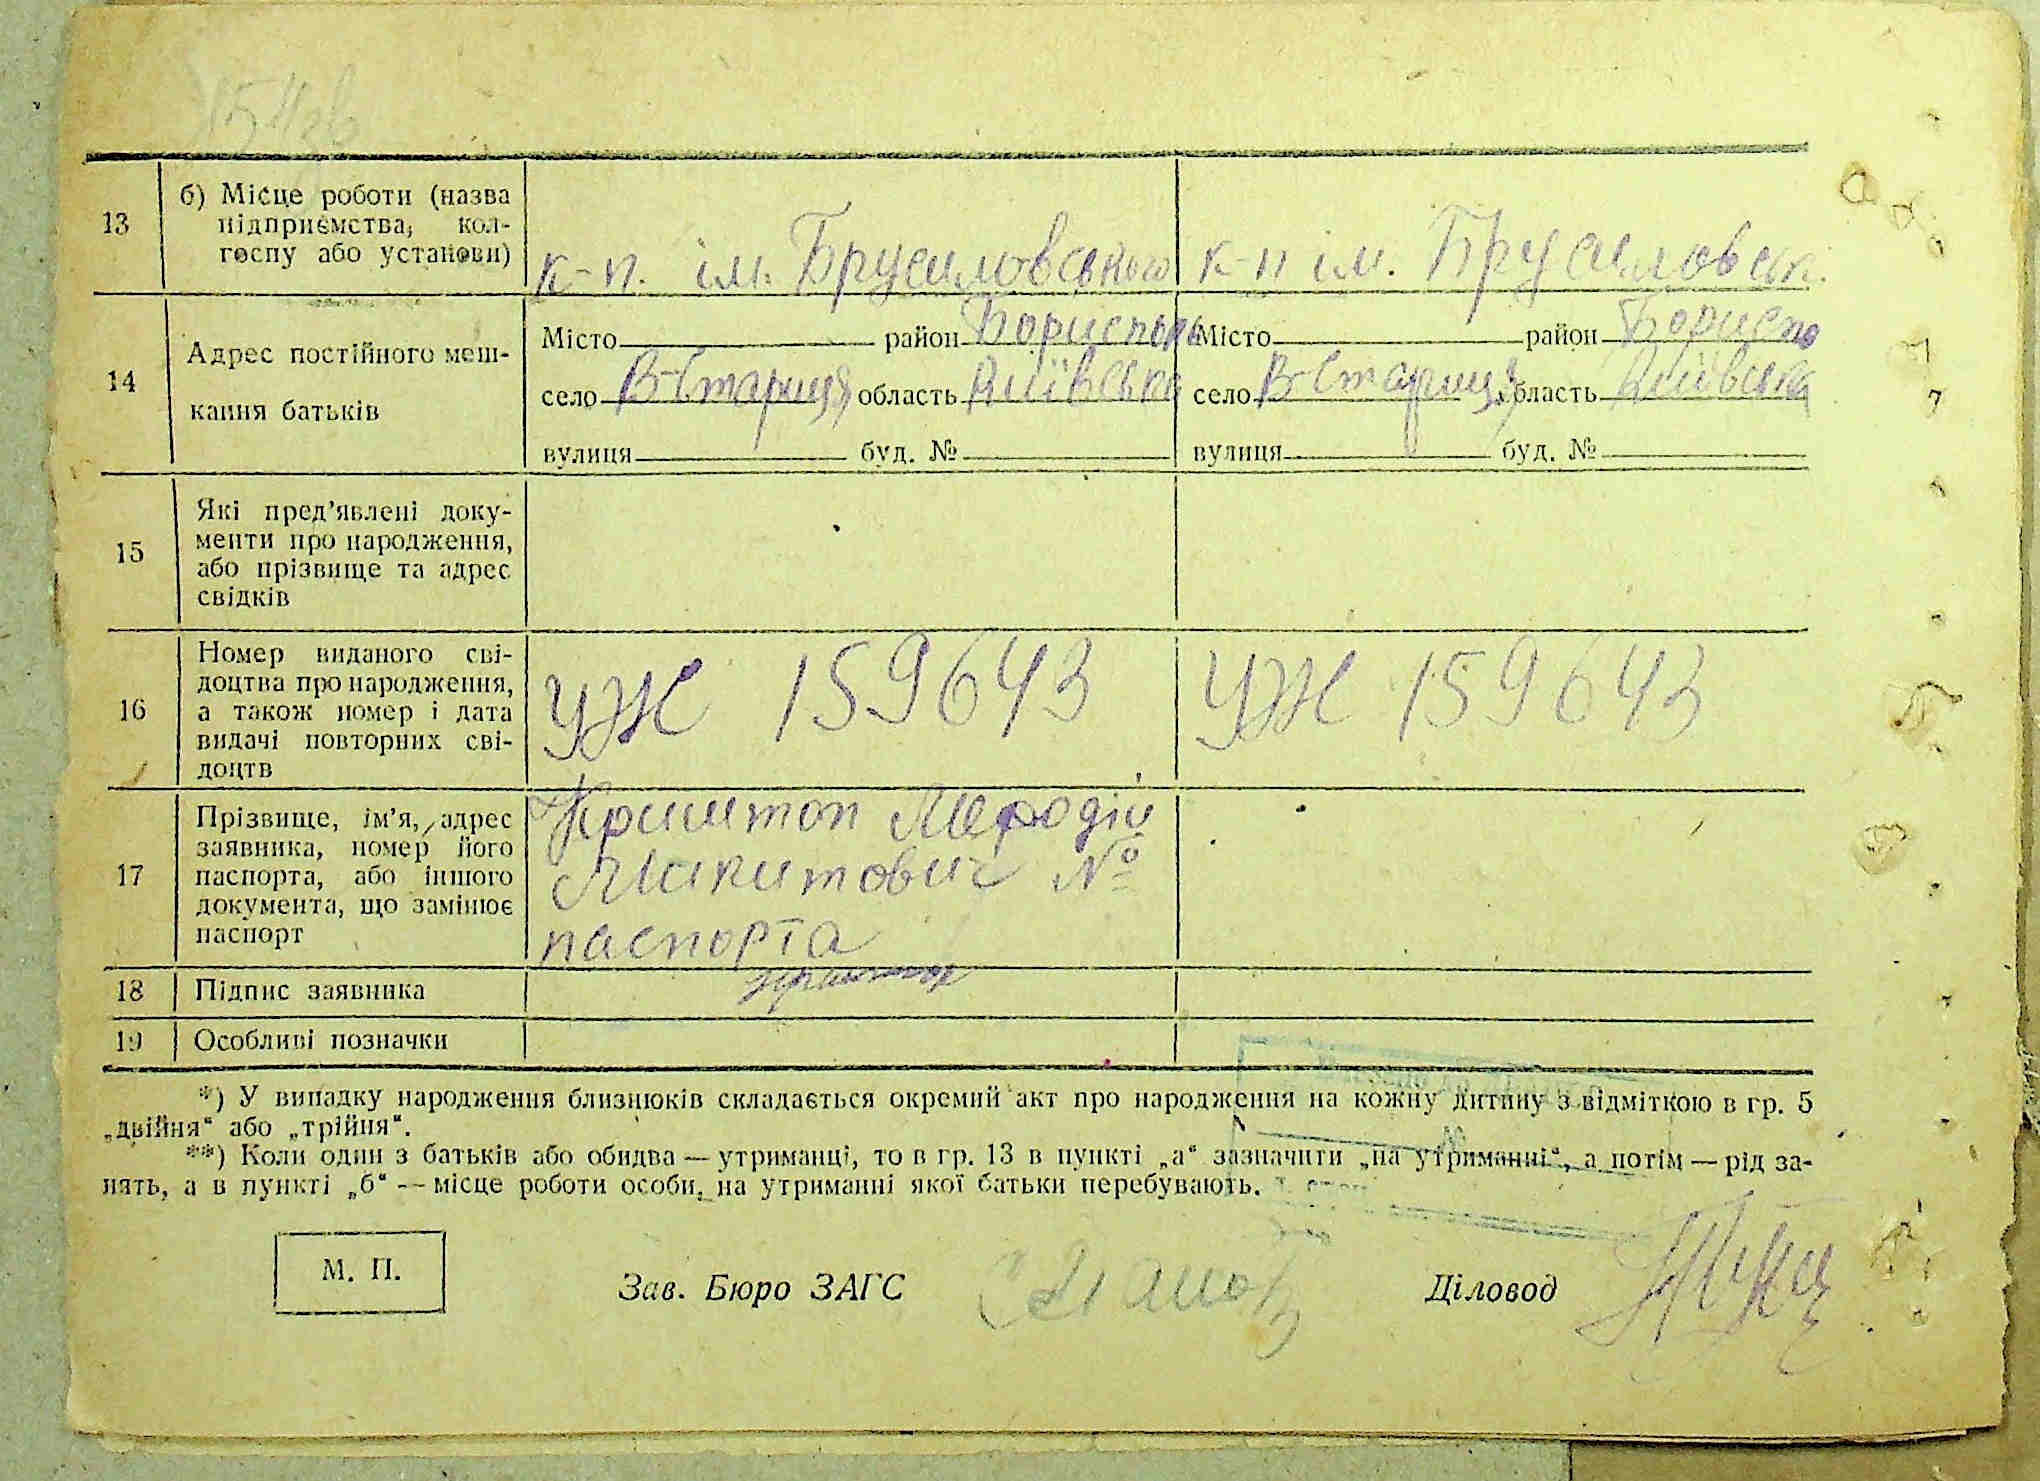 13 б) Місце роботи (назва
підприємства, кол-
госпу або установи)
к-п. ім. Брусиловського к-п ім. Брусиловськ.
14 Адрес постійного меш-
кання батьків
Місто район Бориспол Місто район Бориспо
село В-Стариця область Київська село В-Стариця область Київська
вулиця буд. № вулиця буд. №
15 Які пред'явлені доку-
менти про народження,
або прізвище та адрес
свідків
16 Номер виданого сві-
доцтва про народження,
а також номер і дата
видачі повторних сві-
доцтв
УЖ 159643 УЖ 159643
17 Прізвище, ім'я, адрес
заявника, номер його
паспорта, або іншого
документа, що замінює
паспорт
Криштоп Мефодій
Микитович №
паспорта
18 Підпис заявника
19 Особливі позначки
*) У випадку народження близнюків складається окремий акт про народження на кожну дитину з відміткою в гр. 5
„двійня“ або „трійня“.
**) Коли один з батьків або обидва — утриманці, то в гр. 13 в пункті „а“ зазначити „на утриманні“, а потім — рід за-
нять, а в пункті „б“ — місце роботи особи, на утриманні якої батьки перебувають.
М. П. Зав. Бюро ЗАГС Діловод